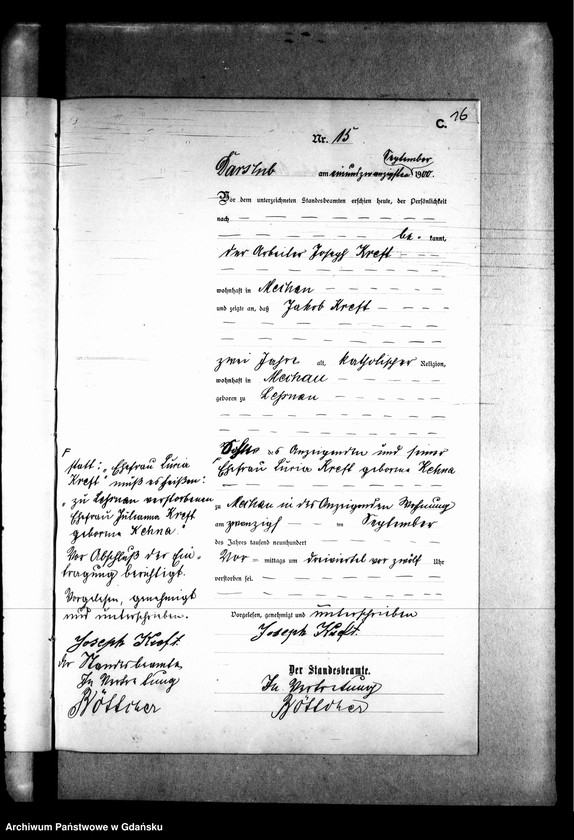 C. 16
Nr. 15
September
Darslub am einundzwanzigsten 1900.
Vor dem unterzeichneten Standesbeamten erschien heute, der Persönlichkeit
nach
be- kannt,
der Arbeiter Joseph Kreft
wohnhaft in Mechau
und zeigte an, daß Jakob Kreft
zwei Jahre alt, katholischer Religion,
wohnhaft in Mechau
geboren zu Lessnau
Sohn des Anzeigenden und seiner
Ehefrau Luria Kreft geborene Kehna
zu Mechau in des Anzeigenden Wohnung
am zwanzigsten September
des Jahres tausend neunhundert
Vor mittags um dreiviertel vor zwölf Uhr
verstorben sei.
Vorgelesen, genehmigt und unterschrieben
Joseph Kreft.
Der Standesbeamte.
In Vertretung
Böttcher
statt: "Ehefrau Luria
Kreft" muß es heißen:
"zu Lessnau verstorbenen
Ehefrau Julianna Kreft
geborene Kehna."
Vor Abschluß der Ein-
tragung berichtigt.
Vorgelesen, genehmigt
und unterschrieben.
Joseph Kreft.
Der Standesbeamte
In Vertretung
Böttcher
Archiwum Państwowe w Gdańsku